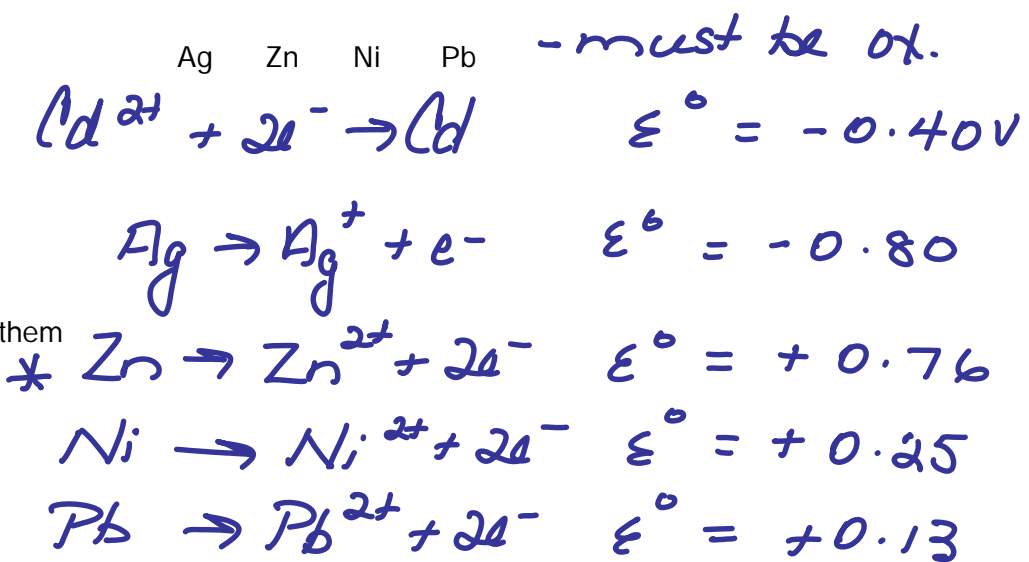 Ag Zn Ni Pb - must be ox.
Cd²⁺ + 2e⁻ → Cd ε° = - 0.40 V
Ag → Ag⁺ + e⁻ ε° = - 0.80
them
* Zn → Zn²⁺ + 2e⁻ ε° = + 0.76
Ni → Ni²⁺ + 2e⁻ ε° = + 0.25
Pb → Pb²⁺ + 2e⁻ ε° = + 0.13